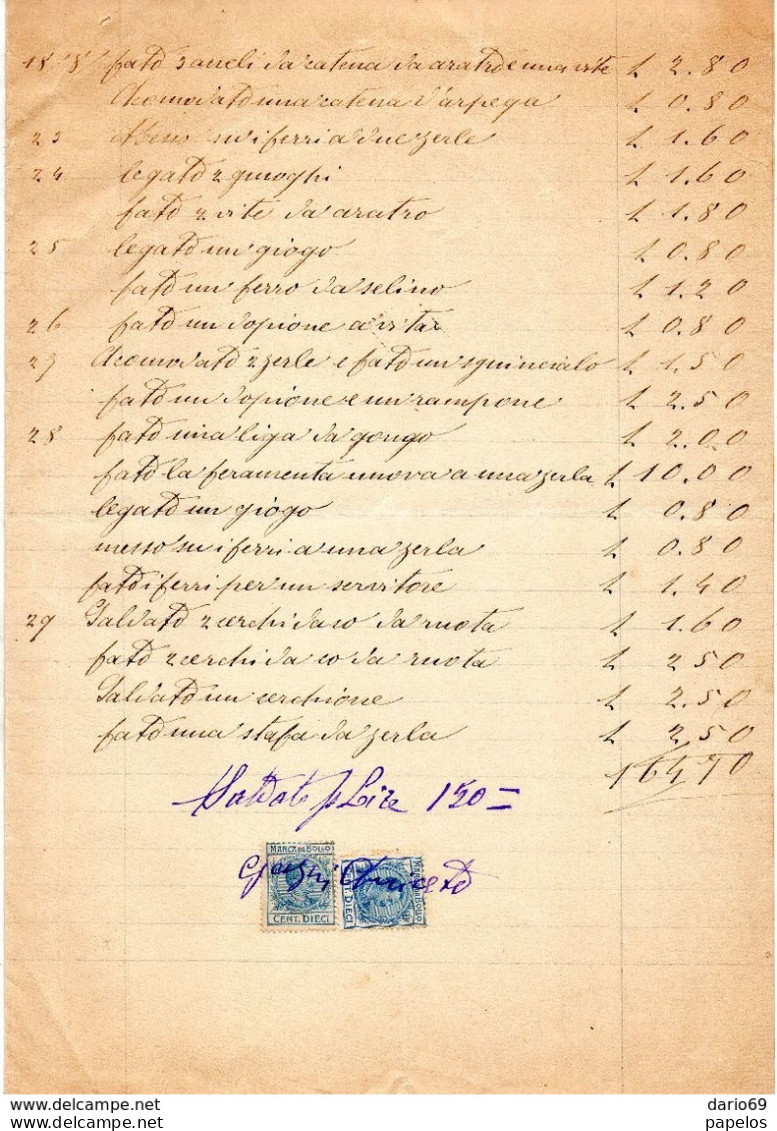 18 8 fatto 3 aneli da catena da aratro e una vite £ 2.80
Acomodatto una catena d'arpega £ 0.80
23 Messo su i ferri a due zerle £ 1.60
24 legatto 2 guioghi £ 1.60
fatto 2 vite da aratro £ 1.80
25 legatto un giogo £ 0.80
fatto un ferro da selino £ 1.20
26 fatto un dopione a vita £ 0.80
27 Acomodatto 2 zerle e fatto un squincialo £ 1.50
fatto un dopione e un rampone £ 2.50
28 fatto una liga da gongo £ 2.00
fatto la feramenta nuova a una zerla £ 10.00
legatto un giogo £ 0.80
messo su i ferri a una zerla £ 0.80
fatto i ferri per un servitore £ 1.40
29 Saldatto 2 cerchi da co da ruota £ 1.60
fatto 2 cerchi da co da ruota £ 2.50
Saldatto un cerchione £ 2.50
fatto una stafa da zerla £ 2.50
164.70
Saldato p Lire 150 =
MARCA DA BOLLO
CENT. DIECI
MARCA DA BOLLO
CENT. DIECI
dario69
papelos